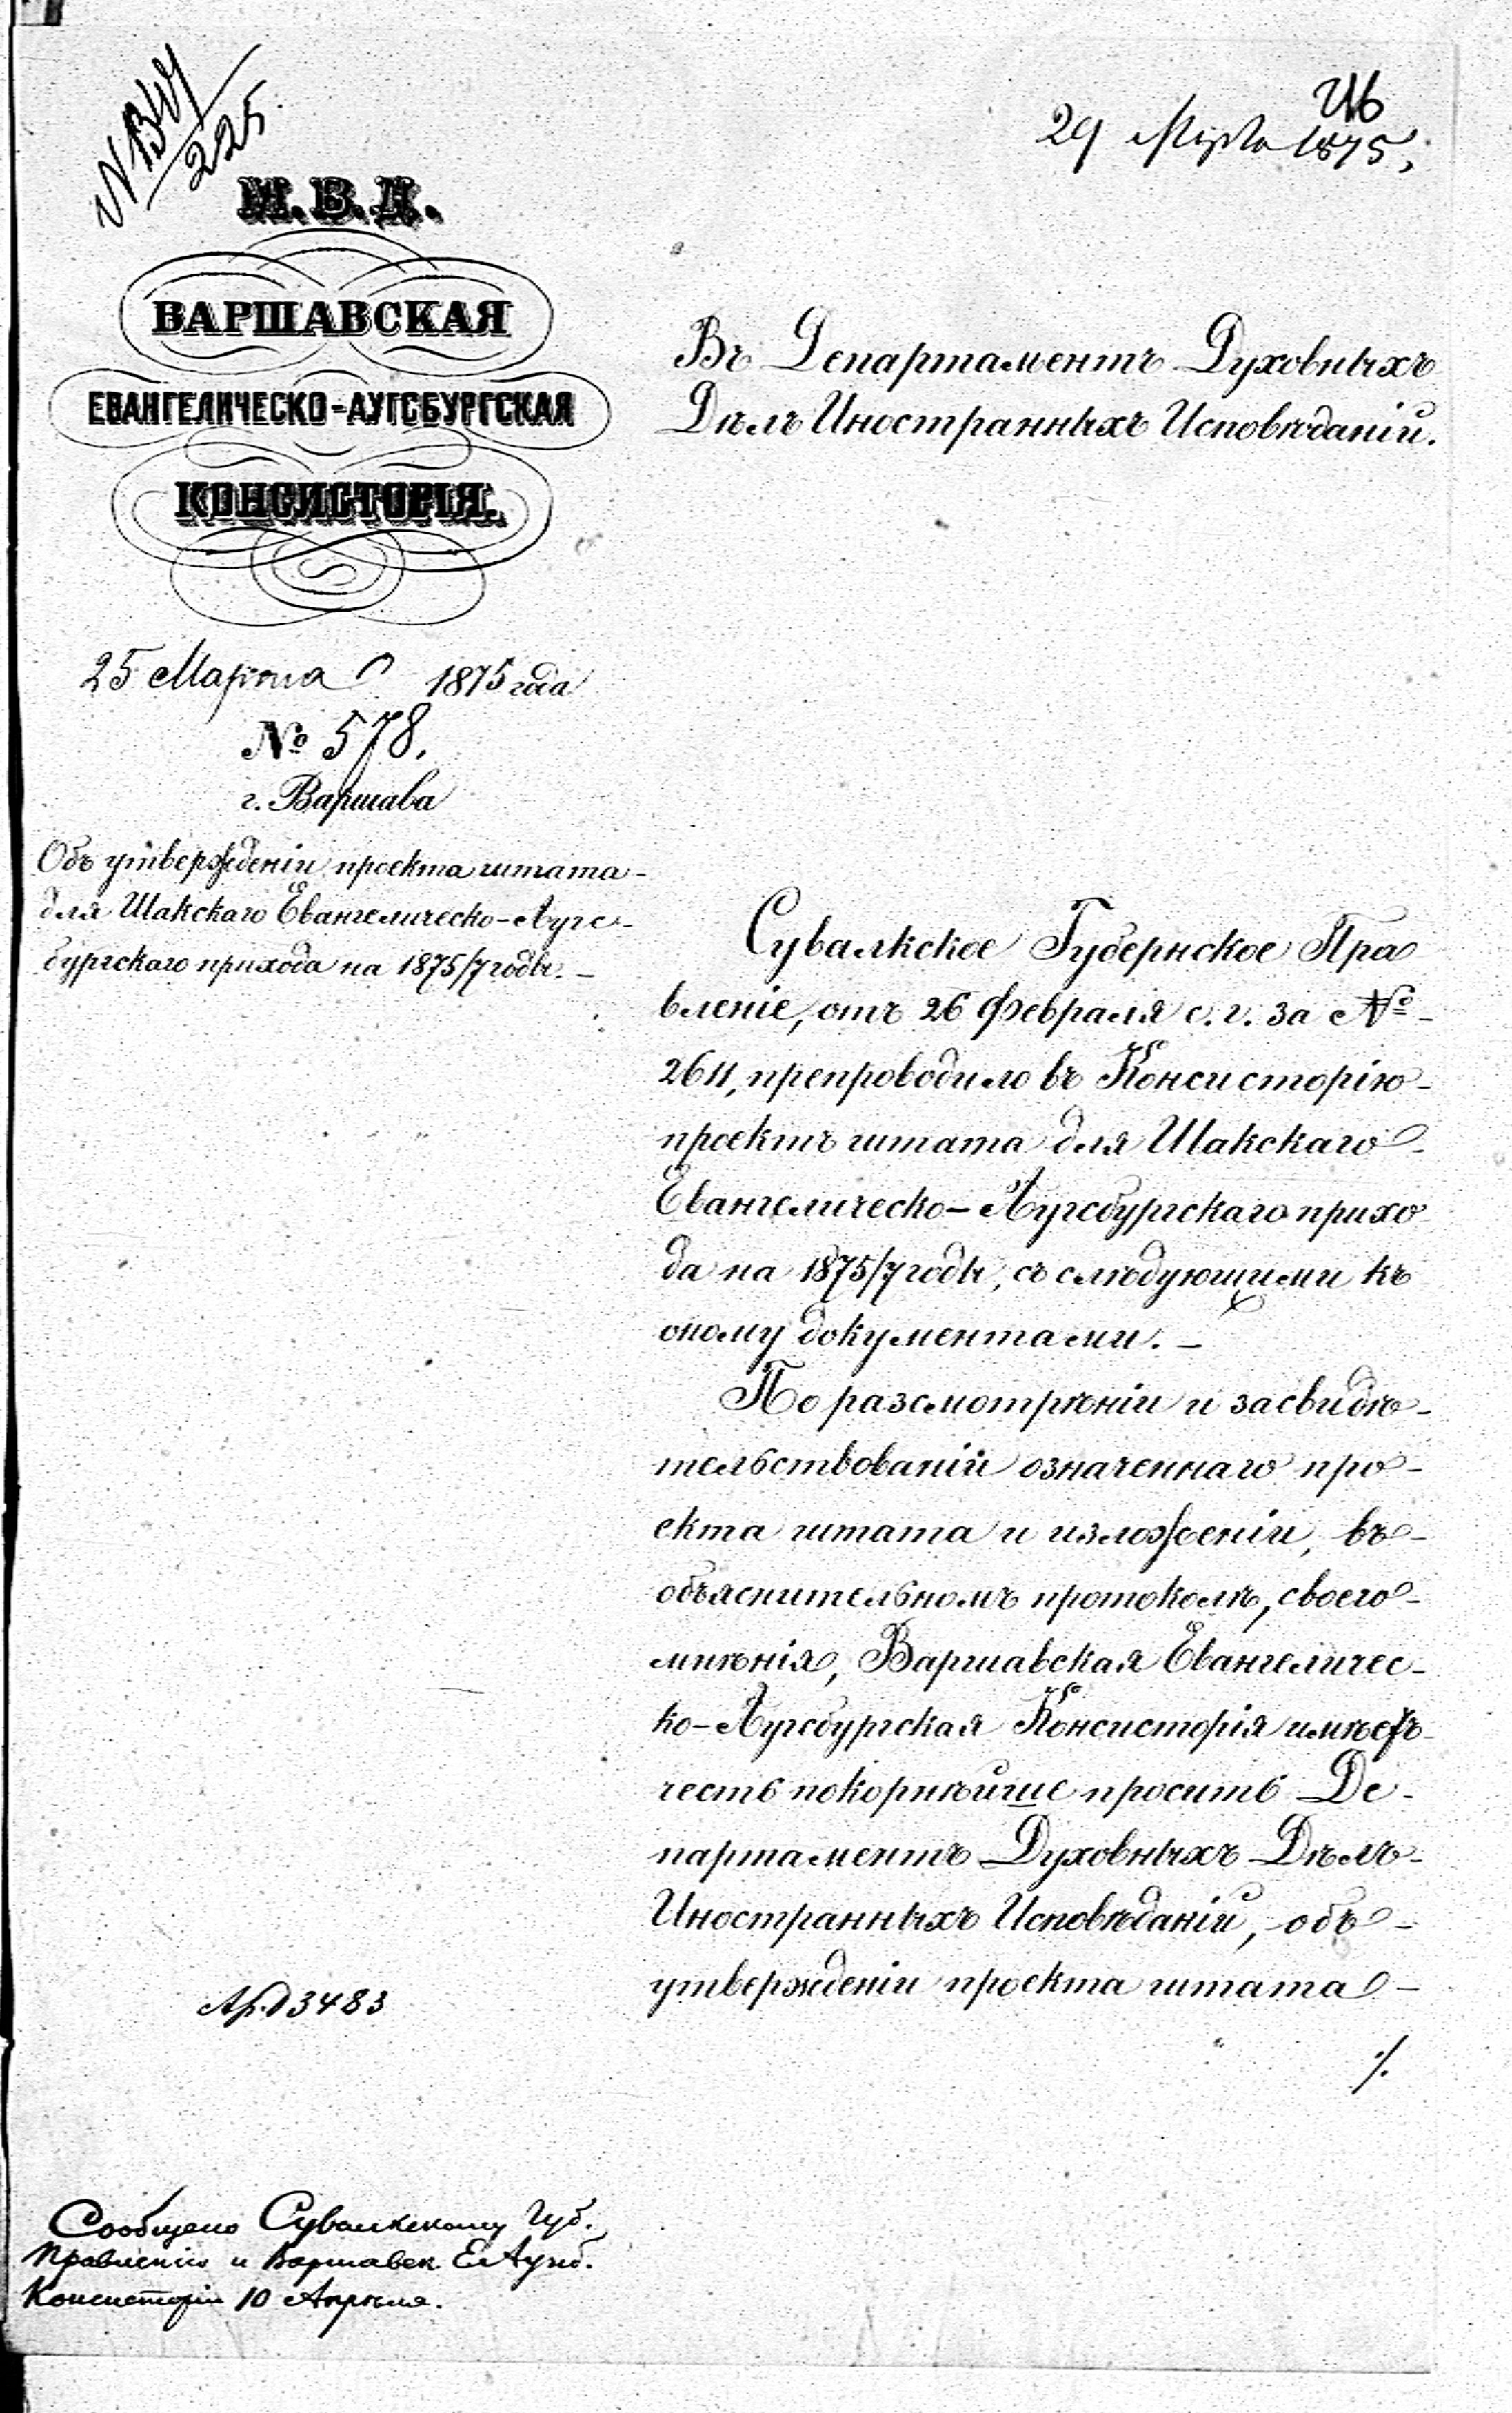 225
29 Марта 1875,
М.В.Д.
ВАРШАВСКАЯ
ЕВАНГЕЛИЧЕСКО-АУГСБУРГСКАЯ
КОНСИСТОРІЯ.
25 Марта 1875 года
№ 578.
г. Варшава
Объ утвержденіи проекта штата
для Шакскаго Евангелическо-Аугс-
бургскаго прихода на 1875/7 годы. –
Въ Департаментъ Духовныхъ
Дѣлъ Иностранныхъ Исповѣданій.
Сувалкское Губернское Пра
вленіе, отъ 26 Февраля с. г. за №
2611, препроводило въ Консисторію
проектъ штата для Шакскаго
Евангелическо-Аугсбургскаго прихо
да на 1875/7 годы, съ слѣдующими къ
оному документами. –
По разсмотрѣніи и засвидѣ-
тельствованіи означеннаго про-
екта штата и изложеніи, въ
объяснительномъ протоколѣ, своего
мнѣнія, Варшавская Евангеличес-
ко-Аугсбургская Консисторія имѣетъ
честь покорнѣйше просить Де-
партаментъ Духовныхъ Дѣлъ
Иностранныхъ Исповѣданій, объ
утвержденіи проекта штата
./.
3483
Сообщено Сувалкскому Губ.
Правленію и Варшавск. Ев Аугсб.
Консисторіи 10 Апрѣля.